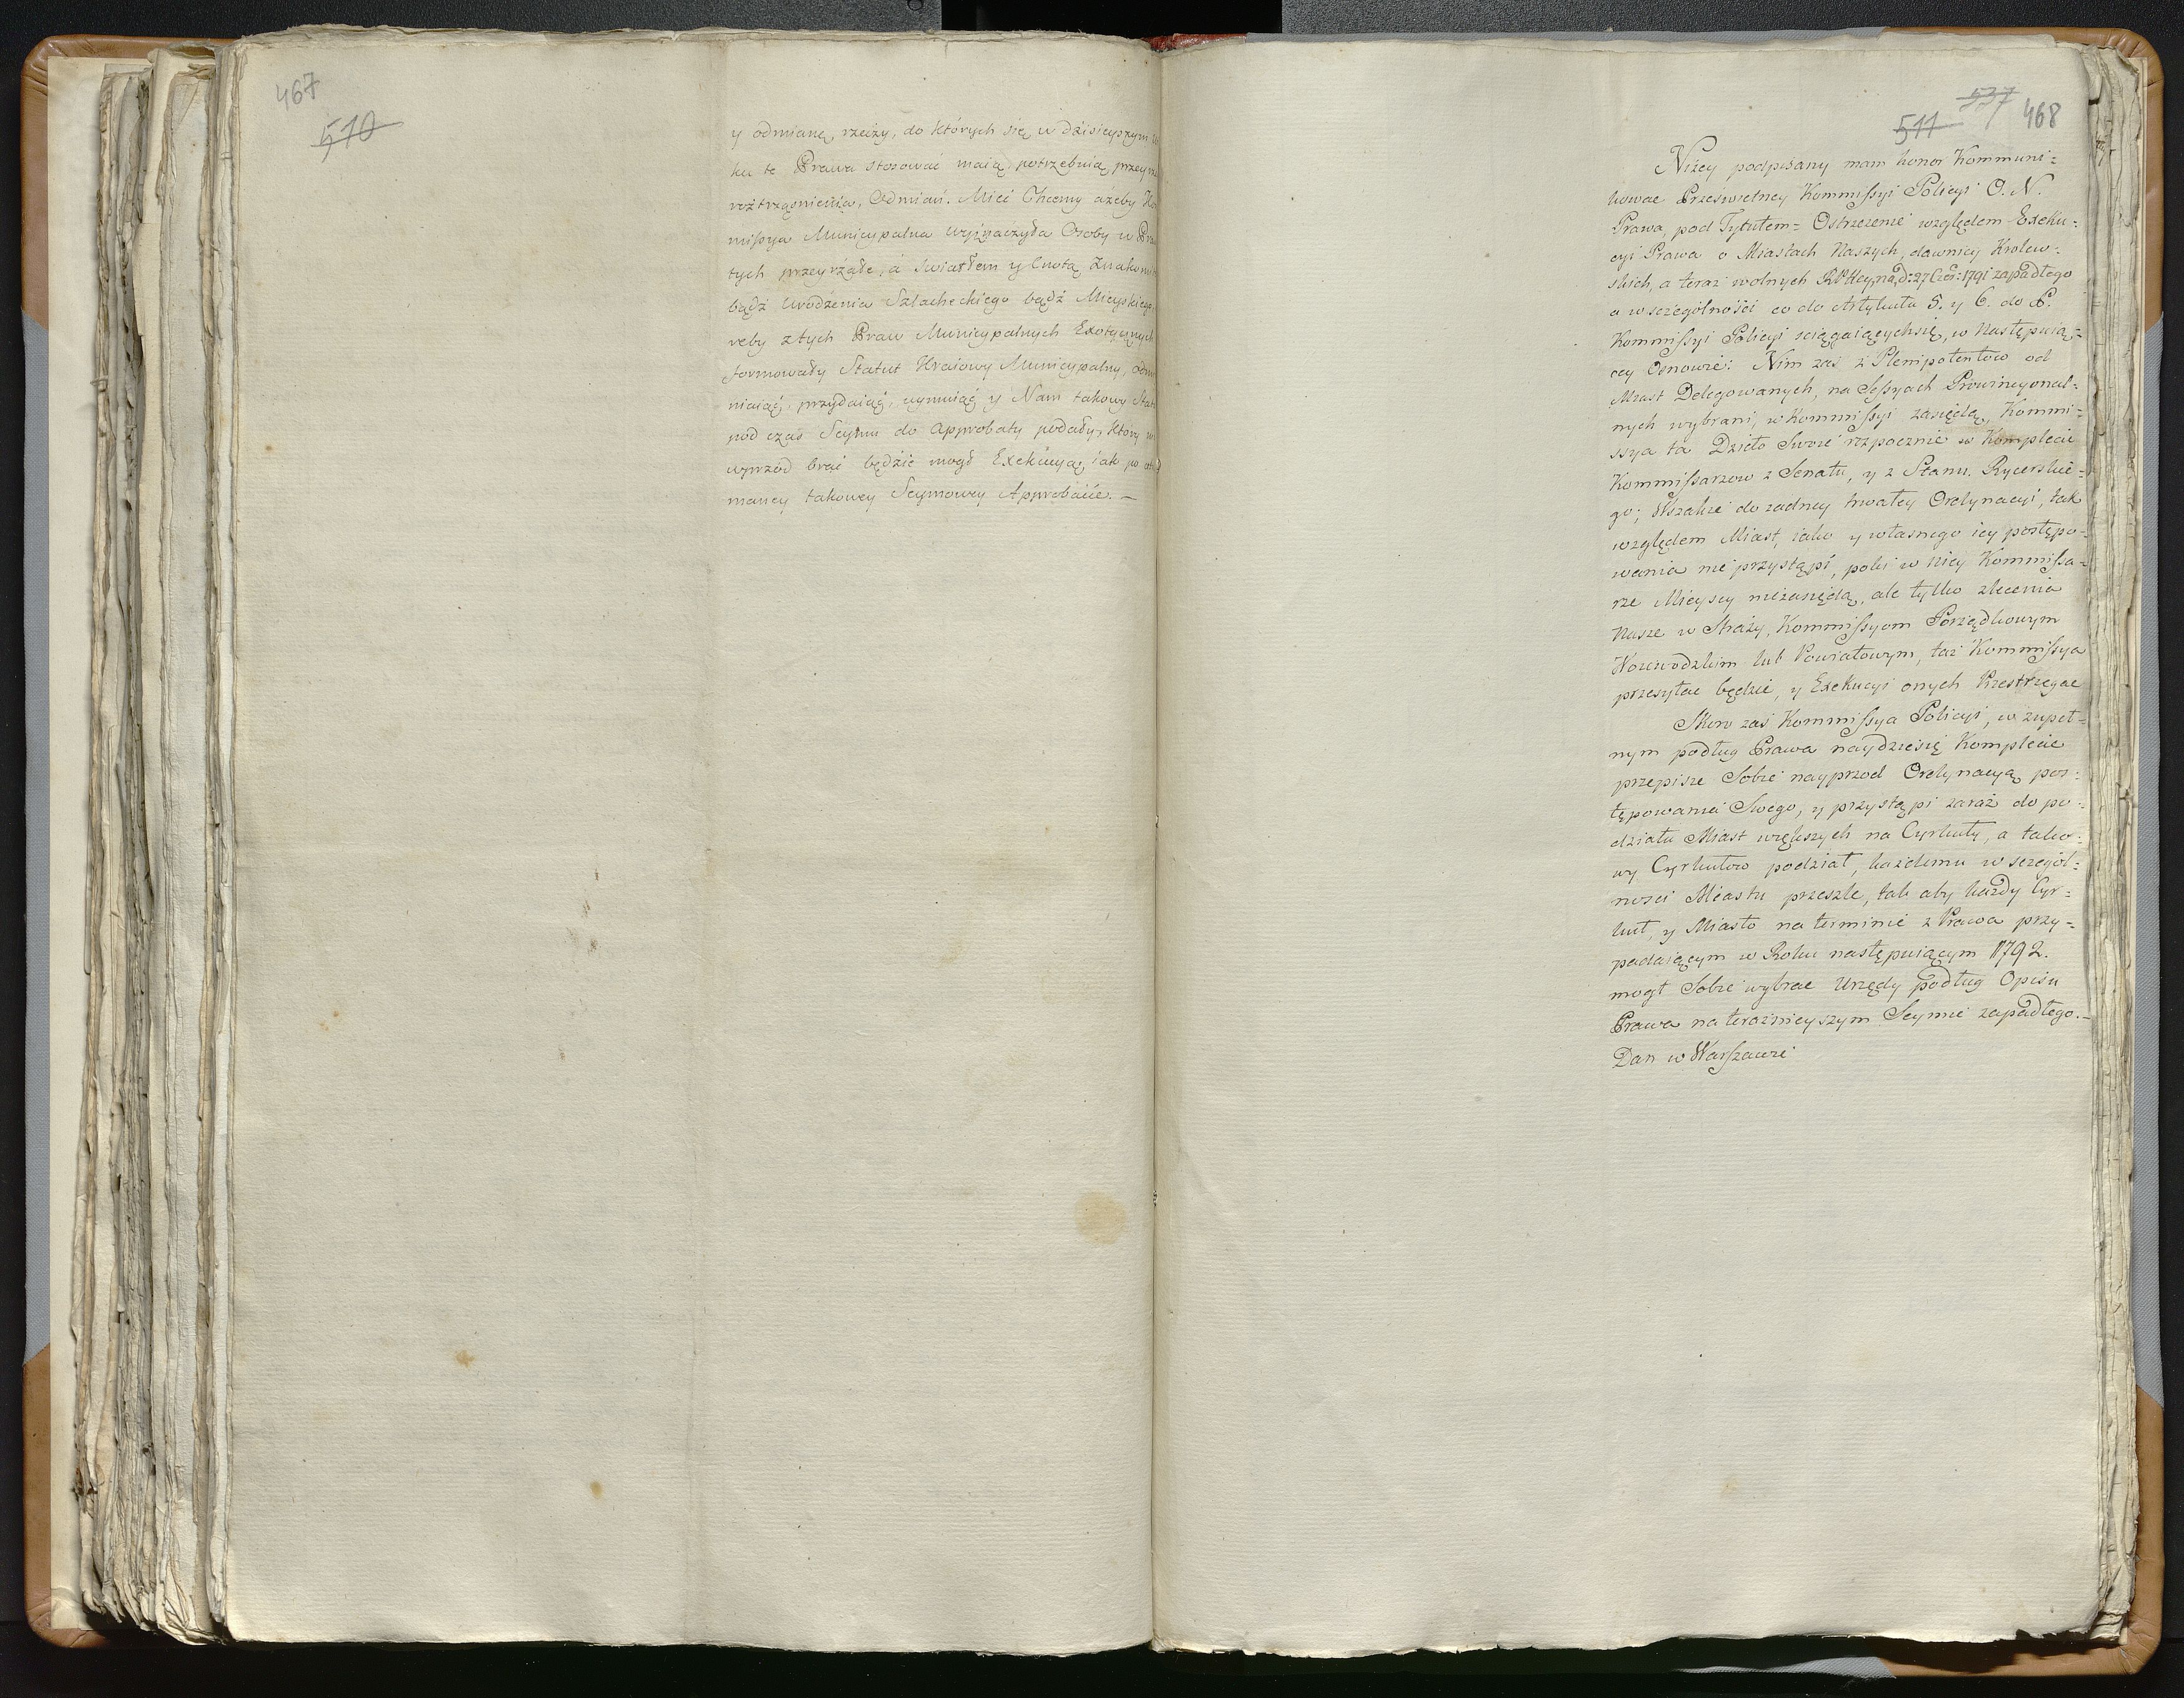 467
510
y odmianę, rzeczy, do których się w dzisieyszym
ku te Prawa stosować maią, potrzebuią przeyrze
roztrząsnienia, Odmian. Mieć Chcemy ażeby Ko
missya Municypalna wyznaczyła Osoby w Pra
tych przeyrzałe, á światłem y Cnotą Znakom
bądź Urodzenia Szlacheckiego bądź Mieyskiego,
reby z tych Praw Municypalnych Exotycznych
formowały Statut Kraiowy Municypalny, odm
niaiąc, przydaiąc, uymuiąc y Nam takowy Stat
pod czas Seymu do Approbaty podały, który
wprzód brać będzie mogł Exekucyą, iak po
maney takowey Seymowey Approbacie. —
537
511 468
Niżey podpisany mam honor Kommuni=
kowac Prześwietney Kommissyi Policyi O. N.
Prawa, pod Tytułem = Ostrzezenie względem Exeku=
cyi Prawa o Miastach Naszych, dawniey Krolew=
skich, a teraz wolnych Rzpltey, na d: 27 Czer: 1791 zapadłego
a w szczególności co do Artykułu 5. y 6. do P.
Kommissyi Policyi sciągaiących się, w Następuią=
cey Osnowie: Nim zas z Plenipotentow od
Miast Delegowanych, na Sessyach Prowincyonal=
nych wybrani, w Kommissyi zasiędą, Kommi=
ssya ta Dzieło Swoie rozpocznie w Komplecie
Kommissarzow z Senatu, y z Stanu Rycerskie=
go; Wszakże do zadney trwałey Ordynacyi, tak
względem Miast, iako y własnego iey postępo=
wania nie przystąpi, poki w Niey Kommissa=
rze Mieyscy niezasiędą, ale tylko zlecenia
Nasze w Straży, Kommissyom Porządkowym
Woiewodzkim lub Powiatowym, taż Kommissya
przesyłac będzie, y Exekucyi onych Przestrzegac
Skoro zaś Kommissya Policyi, w zupeł=
nym podług Prawa naydzie się Komplecie
przepisze Sobie nayprzod Ordynacyą pos=
tępowania Swego, y przystąpi zaraz do po=
działu Miast większych na Cyrkuły, a tako=
wy Cyrkułow podział, każdemu w szczegól=
nosci Miastu przeszle, tak aby każdy Cyr=
kuł, y Miasto na terminie z Prawa przy=
padaiącym w Roku następuiącym 1792.
mogł Sobie wybrac Urzędy podług Opisu
Prawa na teraźnieyszym Seymie zapadłego.—
Dan w Warszawie